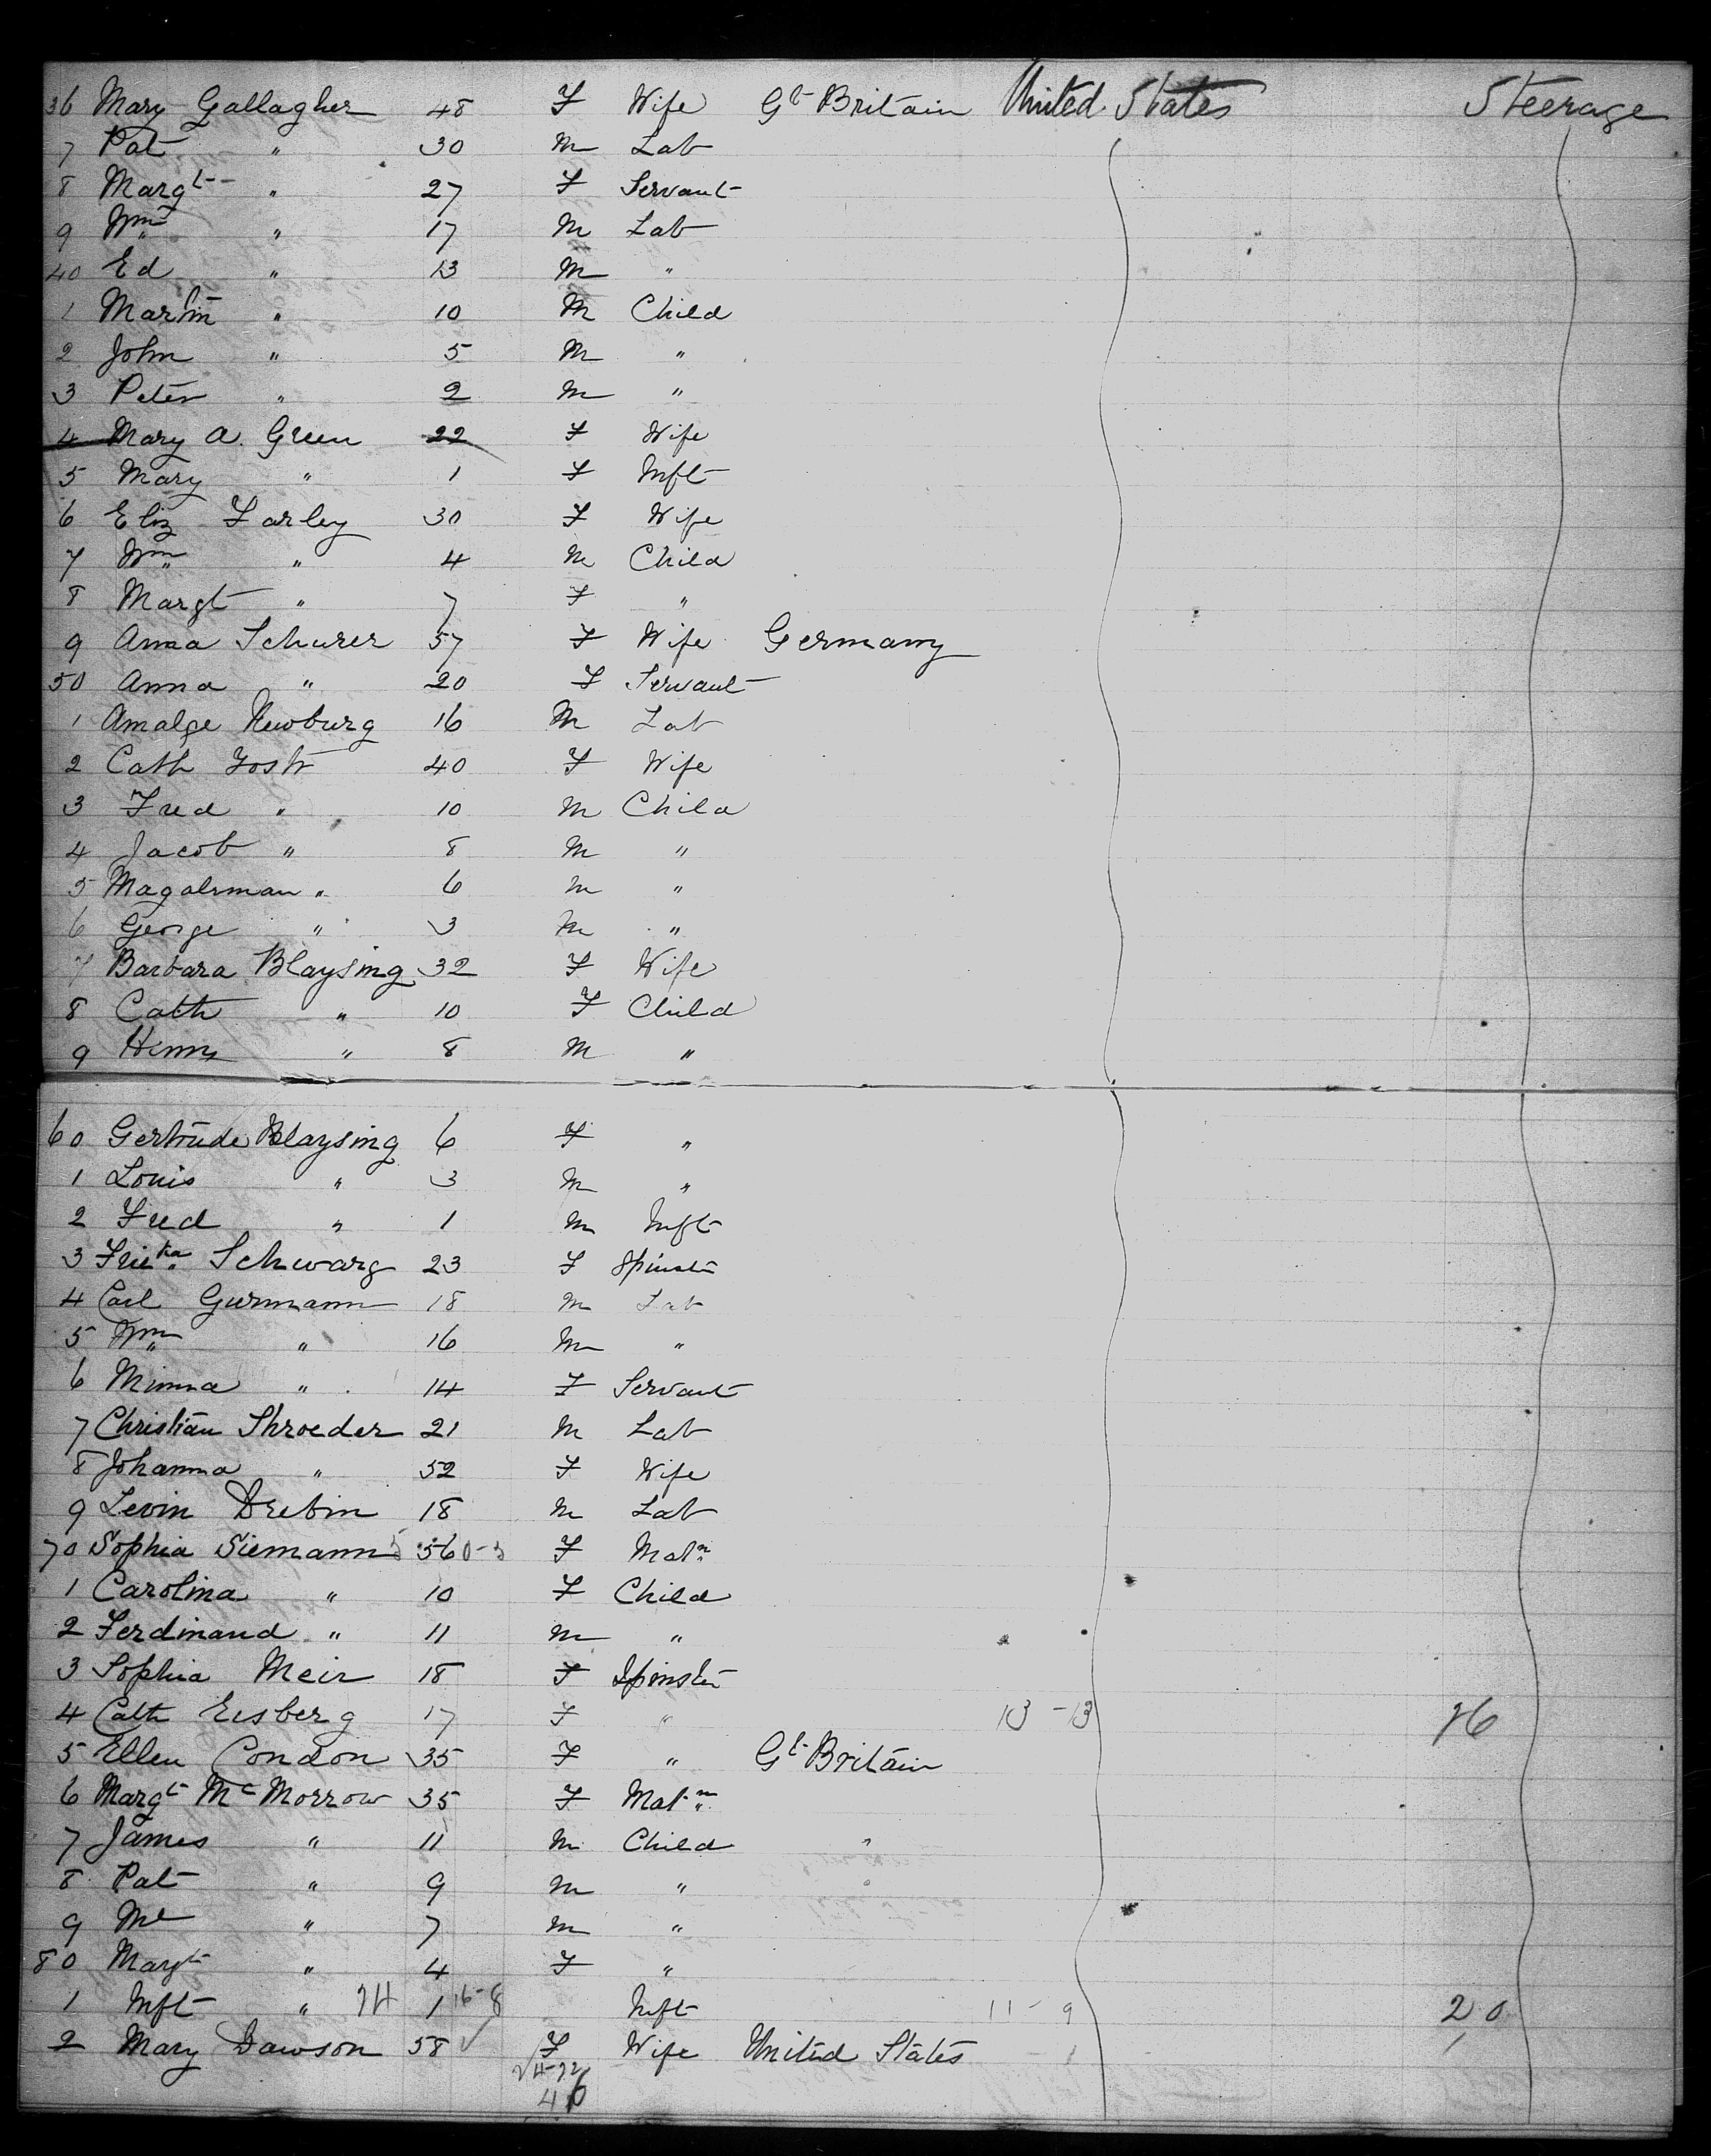 36 Mary Gallagher 48 F Wife Gt Britain United States Steerage
7 Pat " 30 M Lab
8 Margt " 27 F Servant
9 Wm " 17 M Lab
40 Ed " 13 M "
1 Martin " 10 M Child
2 John " 5 M "
3 Peter " 2 M "
4 Mary A. Green 22 F Wife
5 Mary " 1 F Inft
6 Eliz Farley 30 F Wife
7 Wm " 4 M Child
8 Margt " 7 F "
9 Anna Schurer 57 F Wife Germany
50 Anna " 20 F Servant
1 Amalge Newburg 16 M Lab
2 Cath Yost 40 F Wife
3 Fred " 10 M Child
4 Jacob " 8 M "
5 " 6 M "
6 George " 3 M "
7 Barbara Blaysing 32 F Wife
8 Cath " 10 F Child
9 Henry " 8 M "
60 Gertrude Blaysing 6 F "
1 Louis " 3 M "
2 Fred " 1 M Inft
3 Frieka Schwarg 23 F Spinster
4 Carl Gurmann 18 M Lab
5 Wm " 16 M "
6 Minna " 14 F Servant
7 Christian Shroeder 21 M Lab
8 Johanna " 52 F Wife
9 Levin Drebin 18 M Lab
70 Sophia Siemann 56 F Matn
1 Carolina " 10 F Child
2 Ferdinand " 11 M "
3 Sophia Meir 18 F Spinster
4 Cath Eisberg 17 F " 13 - 13 26
5 Ellen Condon 35 F " Gt Britain
6 Margt McMorrow 35 F Matn
7 James " 11 M Child
8 Pat " 9 M "
9 " 7 M "
80 Margt " 4 F "
1 Inft " 1 16-8 Inft 11 - 9 20
2 Mary Dawson 58 F Wife United States - 1 1
24-22
46